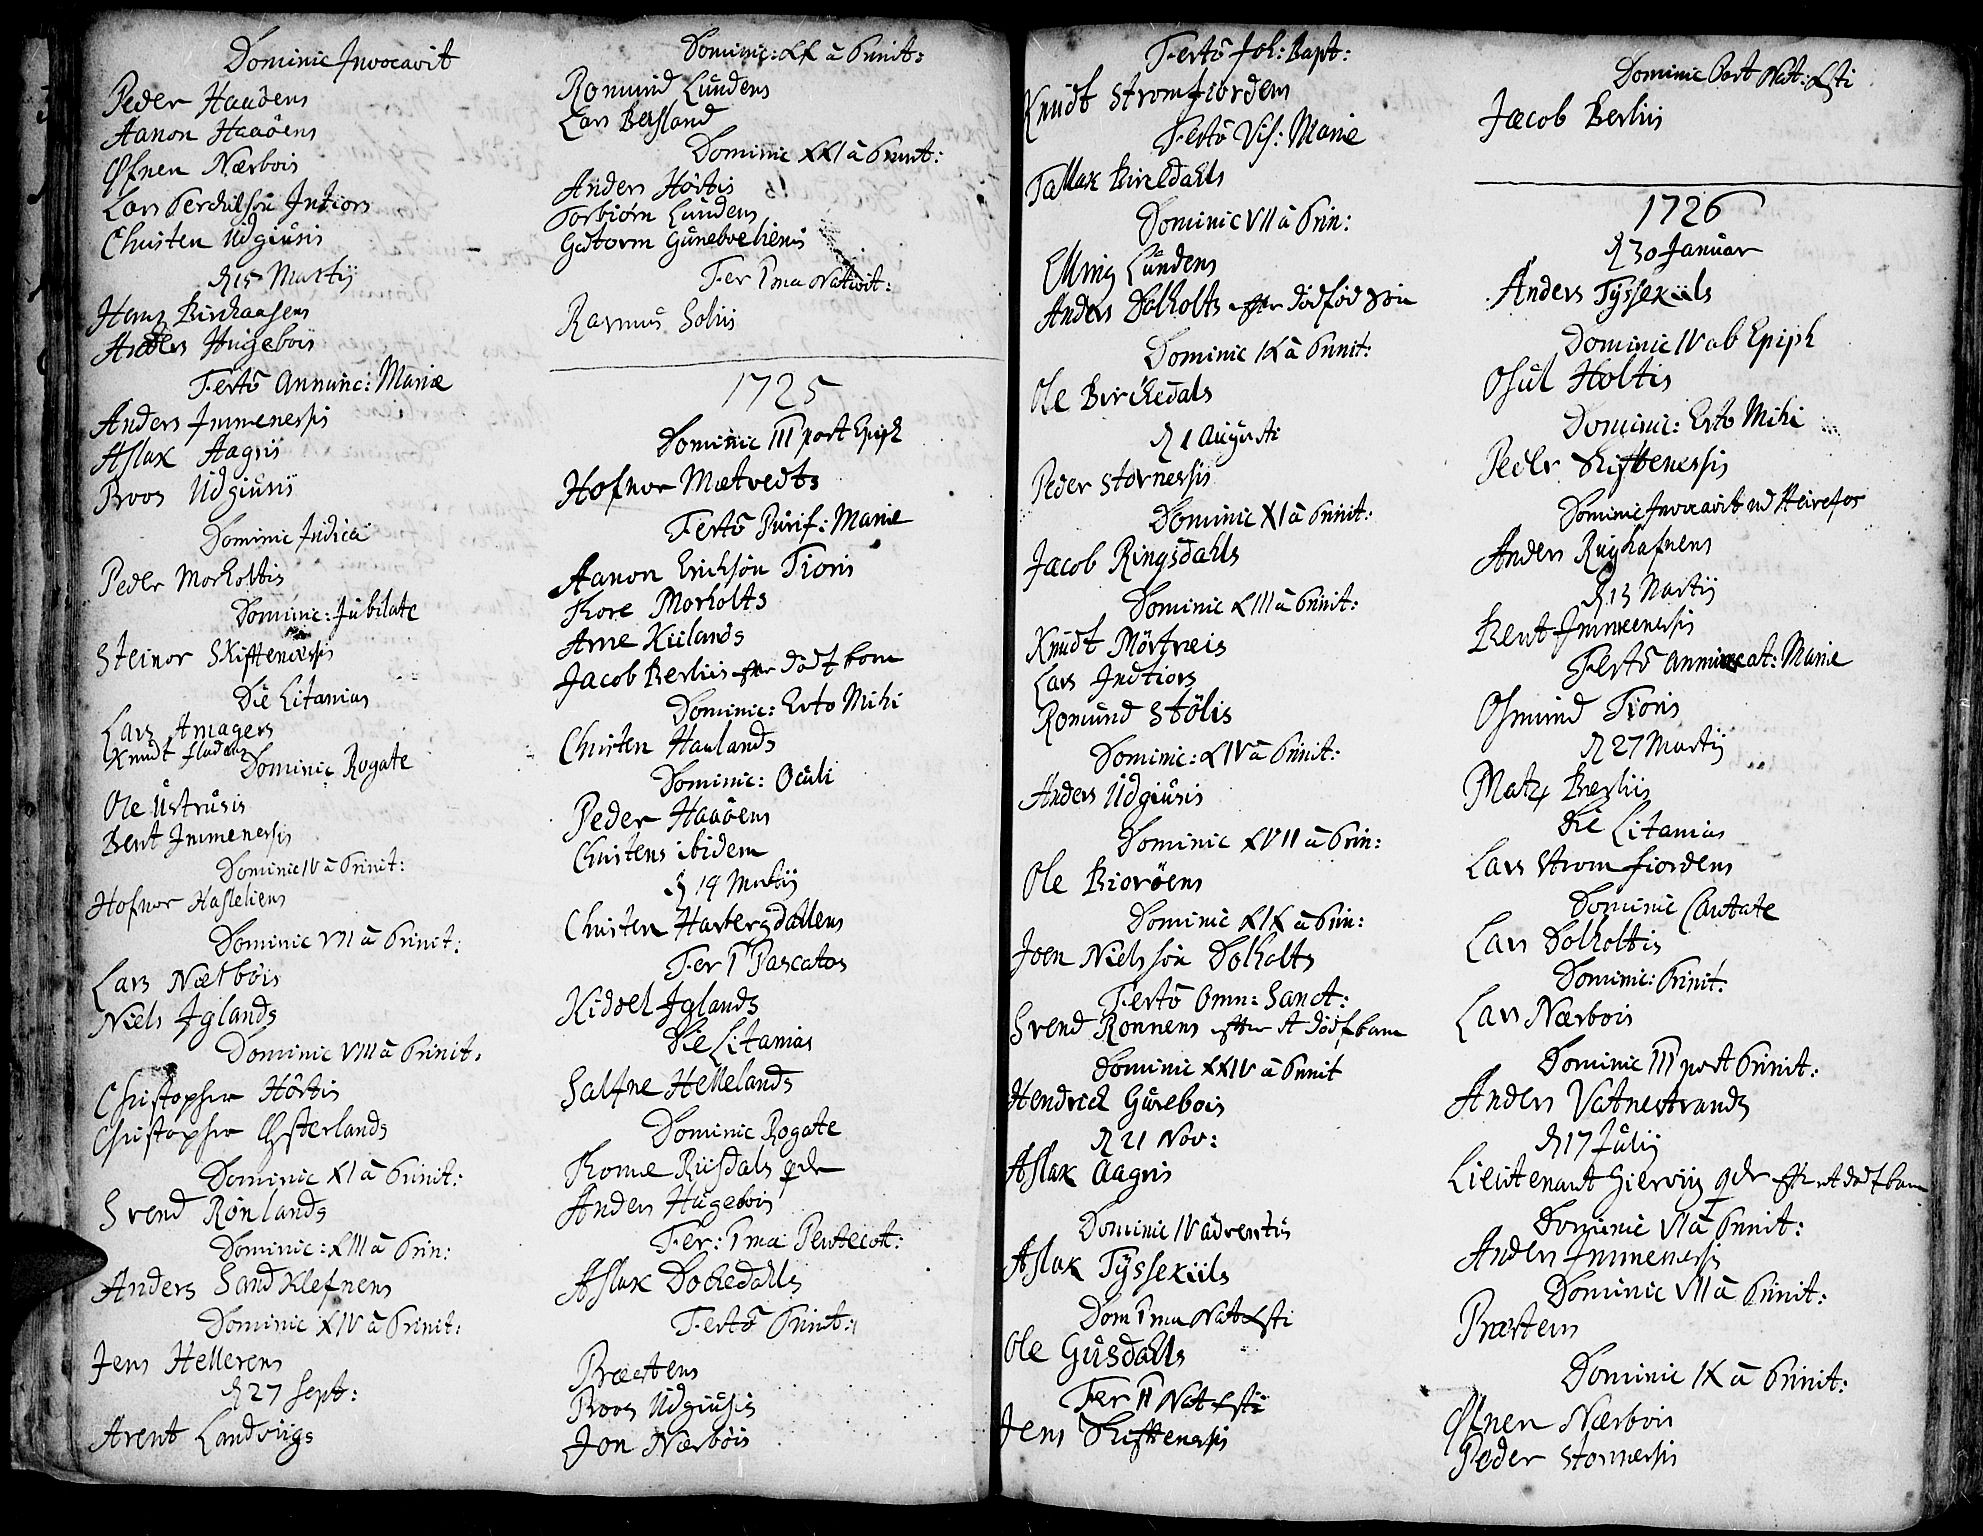 Dominic Invocavit
Peder Haaöens
Aanon Haaöens
Øfnen Nærbois
Lars Perchilsön Indtiors
Christen Udgiusis
d 15 Martij
Hans Birchaasens
Anders Hugebois
Festo Annunc: Mariæ
Anders Immenessis
Aslax Aagris
Roos Udgiusis
Dominic Judica
Peder Morholtis
Dominic: Jubilate
Steinor Skiftenessis
Die Litanias
Lars Amagers
Knudt Fladens
Dominic Rogate
Ole Ustrusis
Bent Immenessis
Dominic IV à Trinit:
Hofnor Hasleliens
Dominic VII à Trinit:
Lars Nætbois
Niels Iglands
Dominic VIII à Trinit.
Christopher Hörtis
Christopher Østerlands
Dominic XI à Trinit:
Svend Rönlands
Dominic: XIII à Trin:
Anders Sandklefnens
Dominic XIV à Trinit:
Jens Hellerens
d 27 Sept:
Arent Landvigs
Dominic: XX à Trinit:
Romund Lundens
Lars Bersland
Dominic XXI à Trinit:
Anders Hörtis
Torbiörn Lundens
Gutorm Guneboeliens
Fer 1ma Nativit:
Rasmus Solis
1725
Dominic III post Epiph
Hofnor Mætvedts
Festo Purif: Mariæ
Aanon Erichsön Tioris
Tore Morholts
Arne Kiilands
Jacob Berliis efter dödt barn
Dominic: Esto Mihi
Christen Haulands
Dominic: Oculi
Peder Haaöens
Christens ibidem
d 19 Martij
Christen Havbergdallens
Fer 1 Pascatos
Kiddel Iglands
Die Litanias
Salfne Hellelands
Dominic Rogate
Tome Riisdals
Anders Hugebois
Fer: 1ma Pentecost:
Aslax Dochedahls
Festo Trinit:
Præstens
Roos Udgiusis
Jon Nærbois
Festo Joh: Bapt:
Knudt Stromfiordens
Festo Vis: Mariæ
Tallax Birchdahls
Dominic VII à Trin:
Elling Lundens
Anders Dolholts efter dödfød Søn
Dominic IX à Trinit:
Ole Birchedals
d 1 Augusti
Peder Stornessis
Dominic XI à Trinit:
Jacob Ringsdahls
Dominic XIII à Trinit:
Knudt Mörtveis
Lars Indtiors
Romund Stölis
Dominic: XIV à Trinit:
Anders Udgiusis
Dominic XVII à Trin:
Ole Bioröens
Dominic XIX à Trin:
Joen Nielssön Dolholts
Festo Omn: Sanct:
Svend Ronnens efter et dödf barn
Dominic XXIV à Trinit
Hendrich Gurebois
d 21 Nov:
Aslax Aagris
Dominic IV adventus
Aslax Tyssekiils
Dom 1ma Nat Xsti
Ole Gusdahls
Fer II Nat Xsti
Jens Skiftenessis
Dominic Post Nat: Xsti
Jacob Berliis
1726
d 30 Januar
Anders Tyssekiils
Dominic IV ab Epiph
Osul Holtis
Dominic: Esto Mihi
Peder Skiftenessis
Dominic Invocavit ud Heirefos
Anders Rughafnens
d 13 Martij
Bent Immenessis
Festo Annuncat: Mariæ
Osmund Tioris
d 27 Martij
Matz Berliis
Die Litanias
Lars Stromfiordens
Dominic Cantate
Lars Dolholtis
Dominic: Trinit.
Lars Nærbois
Dominic III post Trinit:
Anders Vatnestrands
d 17 Julij
Lieutenant Giervig efter et dödt barn
Dominic VI à Trinit:
Anders Immenessis
Dominic VII à Trinit:
Præstens
Dominic IX à Trinit:
Øfnen Nærbois
Peder Stornessis